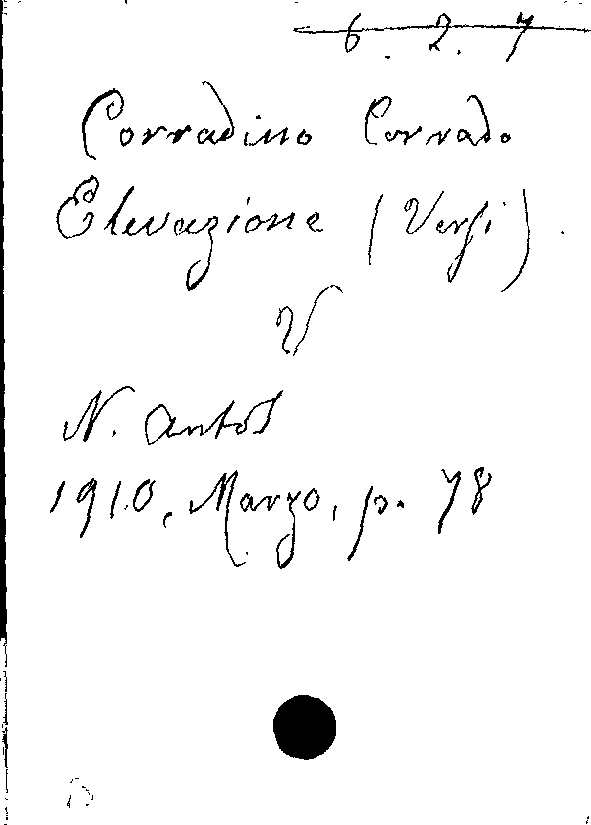 6. 2. 7
Corradino Corrado
Elevazione (Versi).
V
N. Antol
1910, Marzo, p. 78